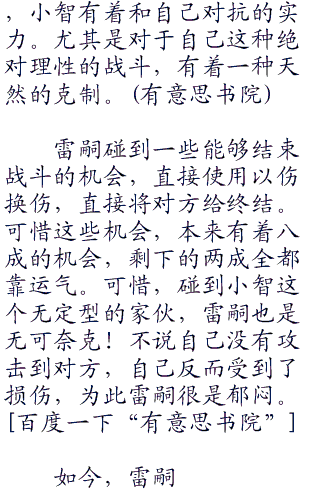 ，小智有着和自己对抗的实
力。尤其是对于自己这种绝
对理性的战斗，有着一种天
然的克制。(有意思书院)
雷嗣碰到一些能够结束
战斗的机会，直接使用以伤
换伤，直接将对方给终结。
可惜这些机会，本来有着八
成的机会，剩下的两成全都
靠运气。可惜，碰到小智这
个无定型的家伙，雷嗣也是
无可奈克！不说自己没有攻
击到对方，自己反而受到了
损伤，为此雷嗣很是郁闷。
[百度一下“有意思书院”]
如今，雷嗣